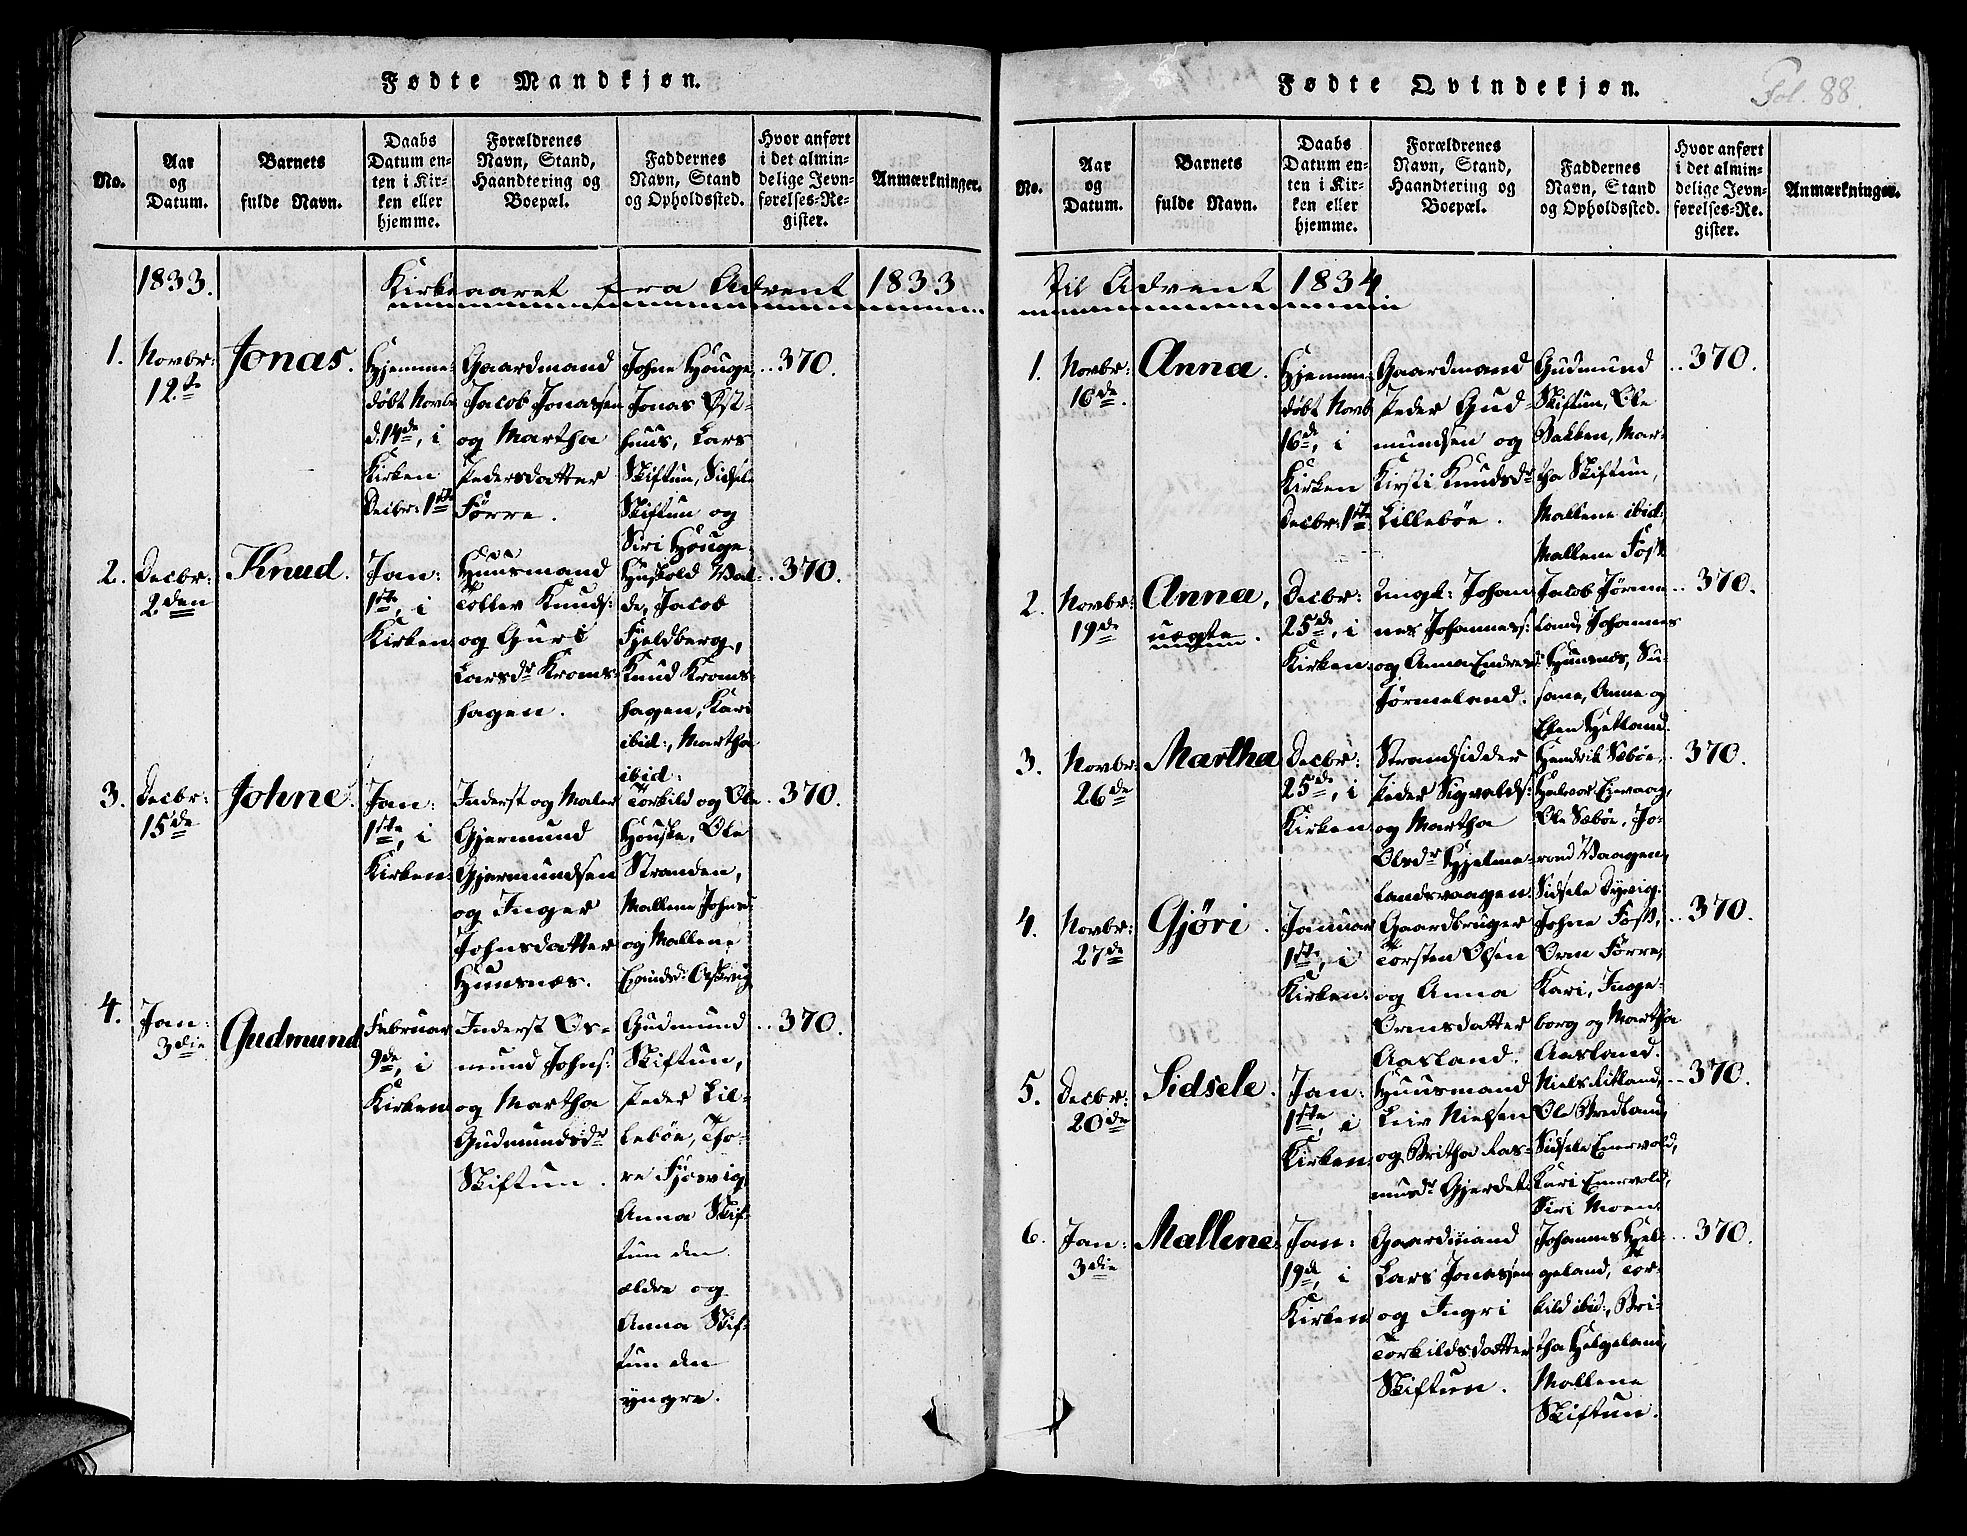 Fødte Mandkjøn.
No.
Aar
og
Datum.
Barnets
fulde Navn.
Daabs
Datum en-
ten i Kir-
ken eller
hjemme.
Forældrenes
Navn, Stand,
Haandtering og
Boepæl.
Faddernes
Navn, Stand
og Opholdssted.
Hvor anført
i det almin-
delige Jevn-
førelses-Re-
gister.
Anmærkninger.
1833.
Kirkeaaret fra Advent 1833
1.
Novbr:
12.te
Jonas.
Hjemme-
døbt Novbr
d: 14de, i
Kirken
Decbr: 1ste
Gaardmand
Jacob Jonassen
og Martha
Pedersdatter
Førre.
Johne Houge,
Jonas Øst-
huus, Lars
Skiftun, Sidsele
Skiftun og
Siri Houge.
370.
2.
Decbr:
2den
Knud.
Jan:
1ste, i
Kirken
Huusmand
Tollev Knuds:
og Guri
Larsdr Kroms-
hagen.
Huskold Val-
de, Jacob
Fjeldberg,
Knud Kroms-
hagen, Kari
ibid:, Martha
ibid:
370.
3.
Decbr:
15de
Johne.
Jan:
1ste, i
Kirken
Inderst og Maler
Gjermund
Gjermundsen
og Inger
Johnsdatter
Huusnæs.
Torkild og Ole
Houske, Ole
Stranden,
Mallene Johnsd:
og Mallene
370.
4.
Jan:
3die
Gudmund
Februar
9de, i
Kirken
Inderst Os-
mund Johns:
og Martha
Gudmundsdr
Skiftun.
Gudmund
Skiftun,
Peder Lil-
lebøe, Tho-
re Fjosvig,
Anna Skif-
tun den
ældre og
Anna Skif-
tun den
yngre.
370.
Fødte Qvindekjøn.
Fol. 88.
No.
Aar
og
Datum.
Barnets
fulde Navn.
Daabs
Datum en-
ten i Kir-
ken eller
hjemme.
Forældrenes
Navn, Stand,
Haandtering og
Boepæl.
Faddernes
Navn, Stand
og Opholdssted.
Hvor anført
i det almin-
delige Jevn-
førelses-Re-
gister.
Anmærkninger.
til Advent 1834.
1.
Novbr:
16de.
Anna.
Hjemme-
døbt Novb
16de, i
Kirken
Decbr: 1ste
Gaardmand
Peder Gud-
mundsen og
Kirsti Knudsdr
Lillebøe.
Gudmund
Skiftun, Ole
Bakken, Mar-
tha Skiftun,
Mallene ibid:
Mallene Foss.
370.
2.
Novbr:
19de
Anna,
uægte.
Decbr:
25de, i
Kirken
Ungk: Johan
nes Johanness:
og Anna Endresd:
Jørmeland.
Jacob Jørme
land, Johannes
Huusnæs, Su-
sane, Anne og
Elen Hetland.
370.
3.
Novbr:
26de
Martha
Decbr:
25de, i
Kirken
Strandsidder
Peder Sigvalds:
og Martha
Olsdr Hjelme-
landsvaagen.
Hendrik Sæbøe,
Halvor Eievaag,
Ole Sæbøe, Jo-
rond Vaagen,
Sidsele Dysvig.
370.
4.
Novbr:
27de
Gjøri.
Januar
1ste, i
Kirken
Gaardbruger
Torsten Olsen
og Anna
Ormsdatter
Aasland.
Johne Foss,
Orm Førre,
Kari, Inge-
borg og Martha
Aasland.
370.
5.
Decbr:
20de
Sidsele.
Jan:
1ste, i
Kirken
Huusmand
Leiv Nielsen
og Britha Ras-
musdr Gjerdet.
Niels Ritland,
Ole Bredland,
Sidsele Enervold,
Kari Enervold,
Siri Moen.
370.
6.
Jan:
3die
Mallene.
Jan:
19de, i
Kirken
Gaardmand
Lars Jonassen
og Ingri
Torkildsdatter
Skiftun.
Johannes Hel-
geland, Tor-
kild ibid:, Bri-
tha Helgeland,
Mallene
Skiftun.
370.